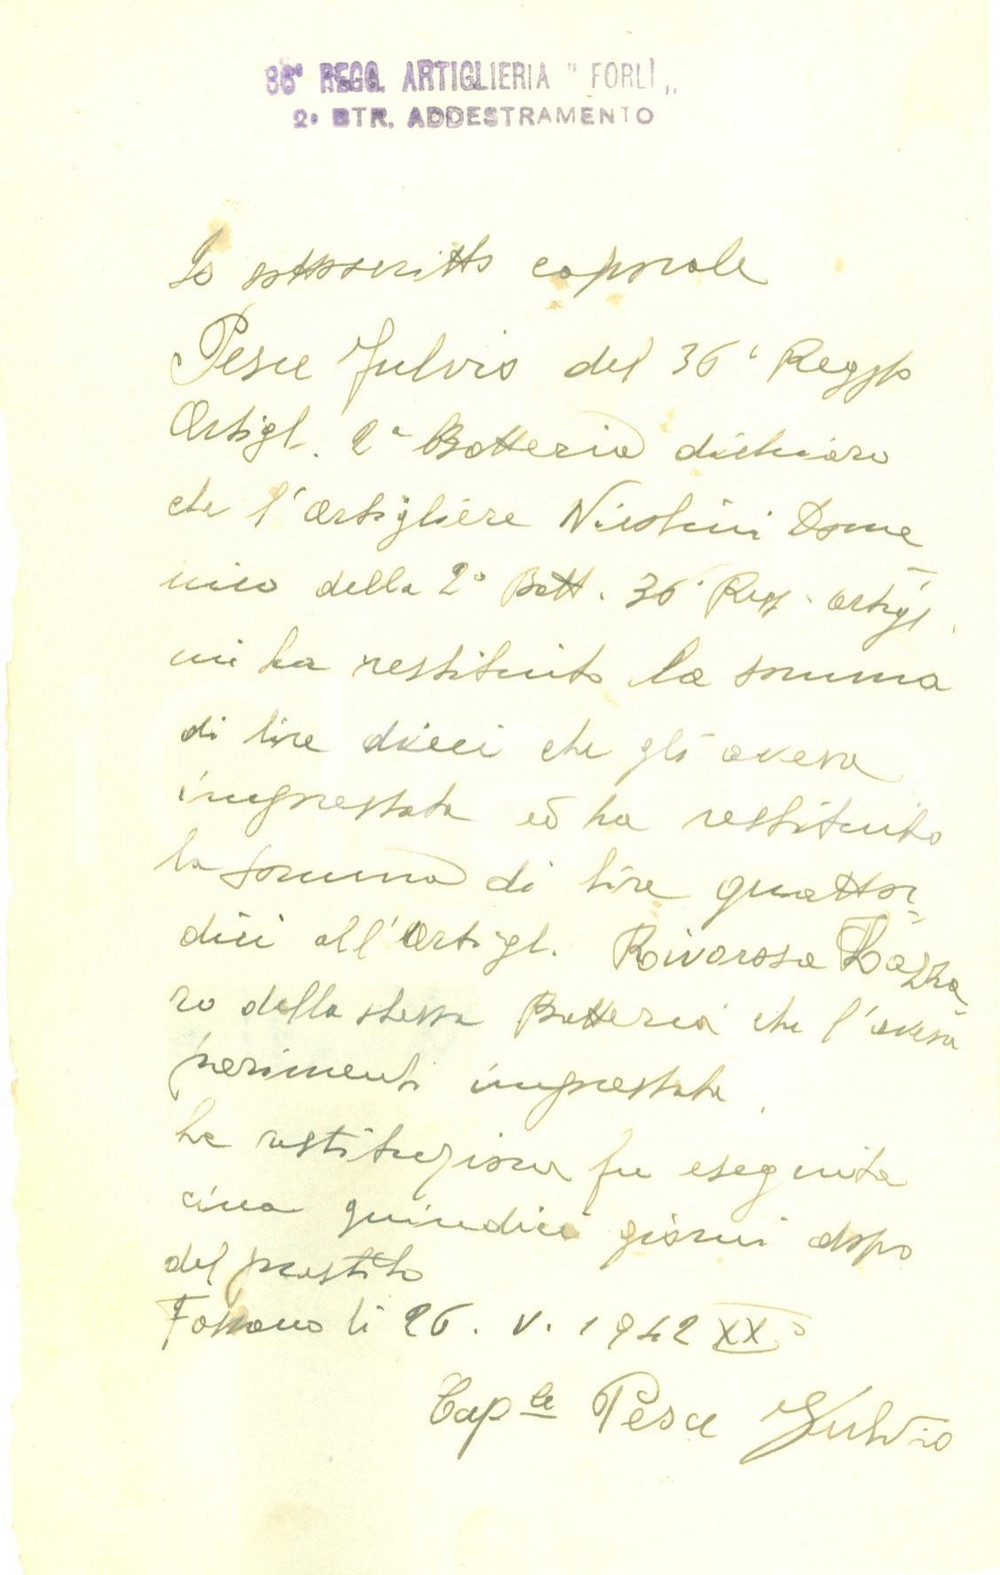 36° REGG. ARTIGLIERIA " FORLÌ "
2ª BTR. ADDESTRAMENTO
Io sottoscritto caporale
Pesce Fulvio del 36° Reggto
Artigl. 2ª Batteria dichiaro
che l'artigliere Nicolini Dome
nico della 2ª Batt. 36° Regg. artigl.
mi ha restituito la somma
di lire dieci che gli aveva
imprestate ed ha restituito
la somma di lire quattor=
dici all'Artigl. Rivarosa Lazza
ro della stessa Batteria che l'aveva
parimenti imprestata.
La restituzione fu eseguita
circa quindici giorni dopo
del prestito
Fossano lì 26. V. 1942 XX°
Cap.le Pesce Fulvio